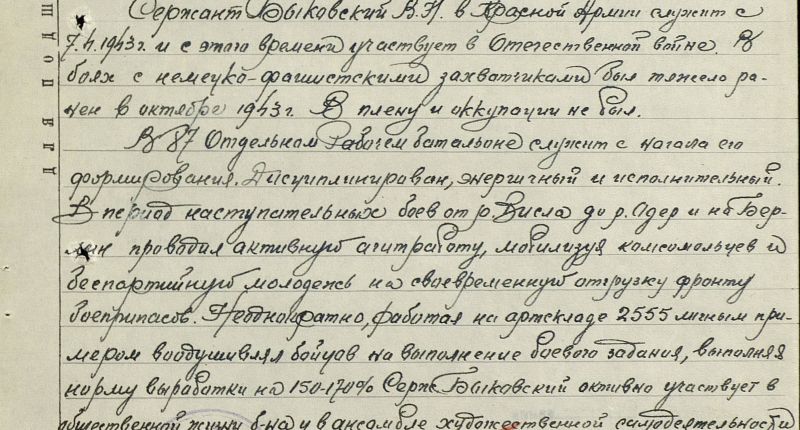 Сержант Быковский В.Н. в Красной Армии служит с
7.4.1943г. и с этого времени участвует в Отечественной войне. В
боях с немецко-фашистскими захватчиками был тяжело ра-
нен в октябре 1943г. В плену и оккупации не был.
В 87 Отдельном Рабочем батальоне служит с начала его
формирования. Дисциплинирован, энергичный и исполнительный.
В период наступательных боев от р. Висла до р. Одер и на Бер-
лин проводил активную агитработу, мобилизуя комсомольцев и
беспартийную молодежь на своевременную отгрузку фронту
боеприпасов. Неоднократно, работая на артскладе 2555 личным при-
мером воодушивлял бойцов на выполнение боевого задания, выполняя
норму выработки на 150-170% Серж. Быковский активно участвует в
общественной жизни б-на и в ансамбле художественной самодеятельности
ДЛЯ ПОДШ